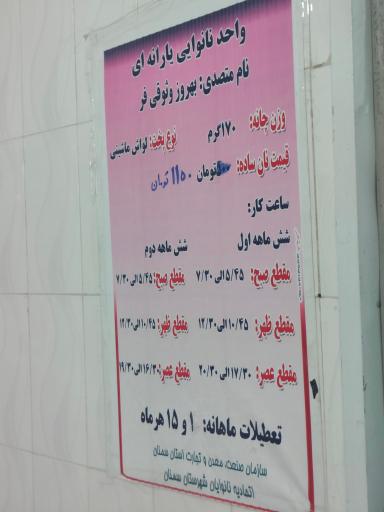 واحد نانوایی یارانه ای
نام متصدی: بهروز وثوقی فر
وزن چانه: ۱۷۰گرم نوع پخت: لواش ماشینی
قیمت نان ساده: تومان ۱۱۰۰ تومان
ساعت کار:
شش ماهه اول شش ماهه دوم
مقطع صبح: ۵/۴۵ الی ۷/۳۰ مقطع صبح: ۵/۴۵ الی ۷/۳۰
مقطع ظهر: ۱۰/۴۵ الی ۱۲/۳۰ مقطع ظهر: ۱۰/۴۵ الی ۱۲/۳۰
مقطع عصر: ۱۷/۳۰ الی ۲۰/۳۰ مقطع عصر: ۱۶/۳۰ الی ۱۹/۳۰
تعطیلات ماهانه: ۱ و ۱۵ هرماه
سازمان صنعت، معدن و تجارت استان سمنان
اتحادیه نانوایان شهرستان سمنان